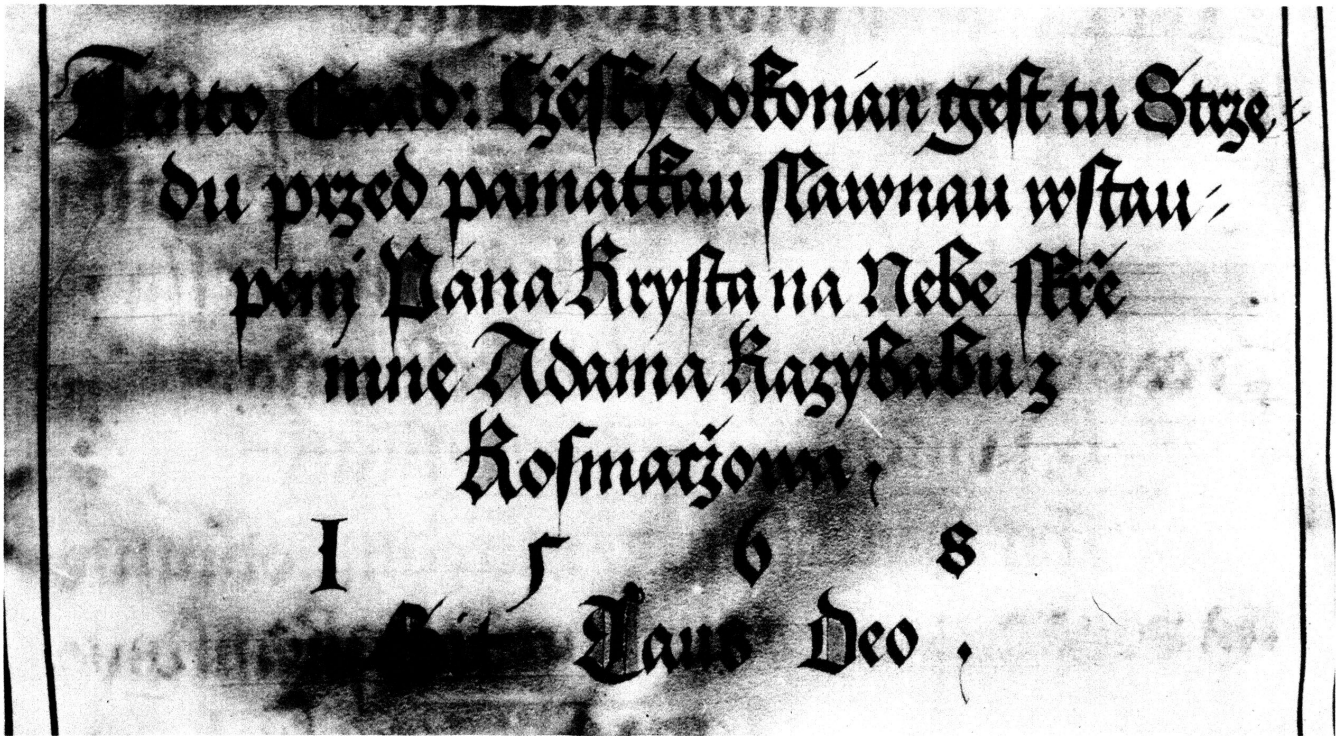 Tento Grad: Cżěský dokonán gest tu Strze⸗
du przed pamatkau slawnau wstau⸗
penj Pána Krysta na Nebe skrě
mne Adama Kazybabu z
Kosmaczowa,
1 5 6 8
Sit Laus Deo,